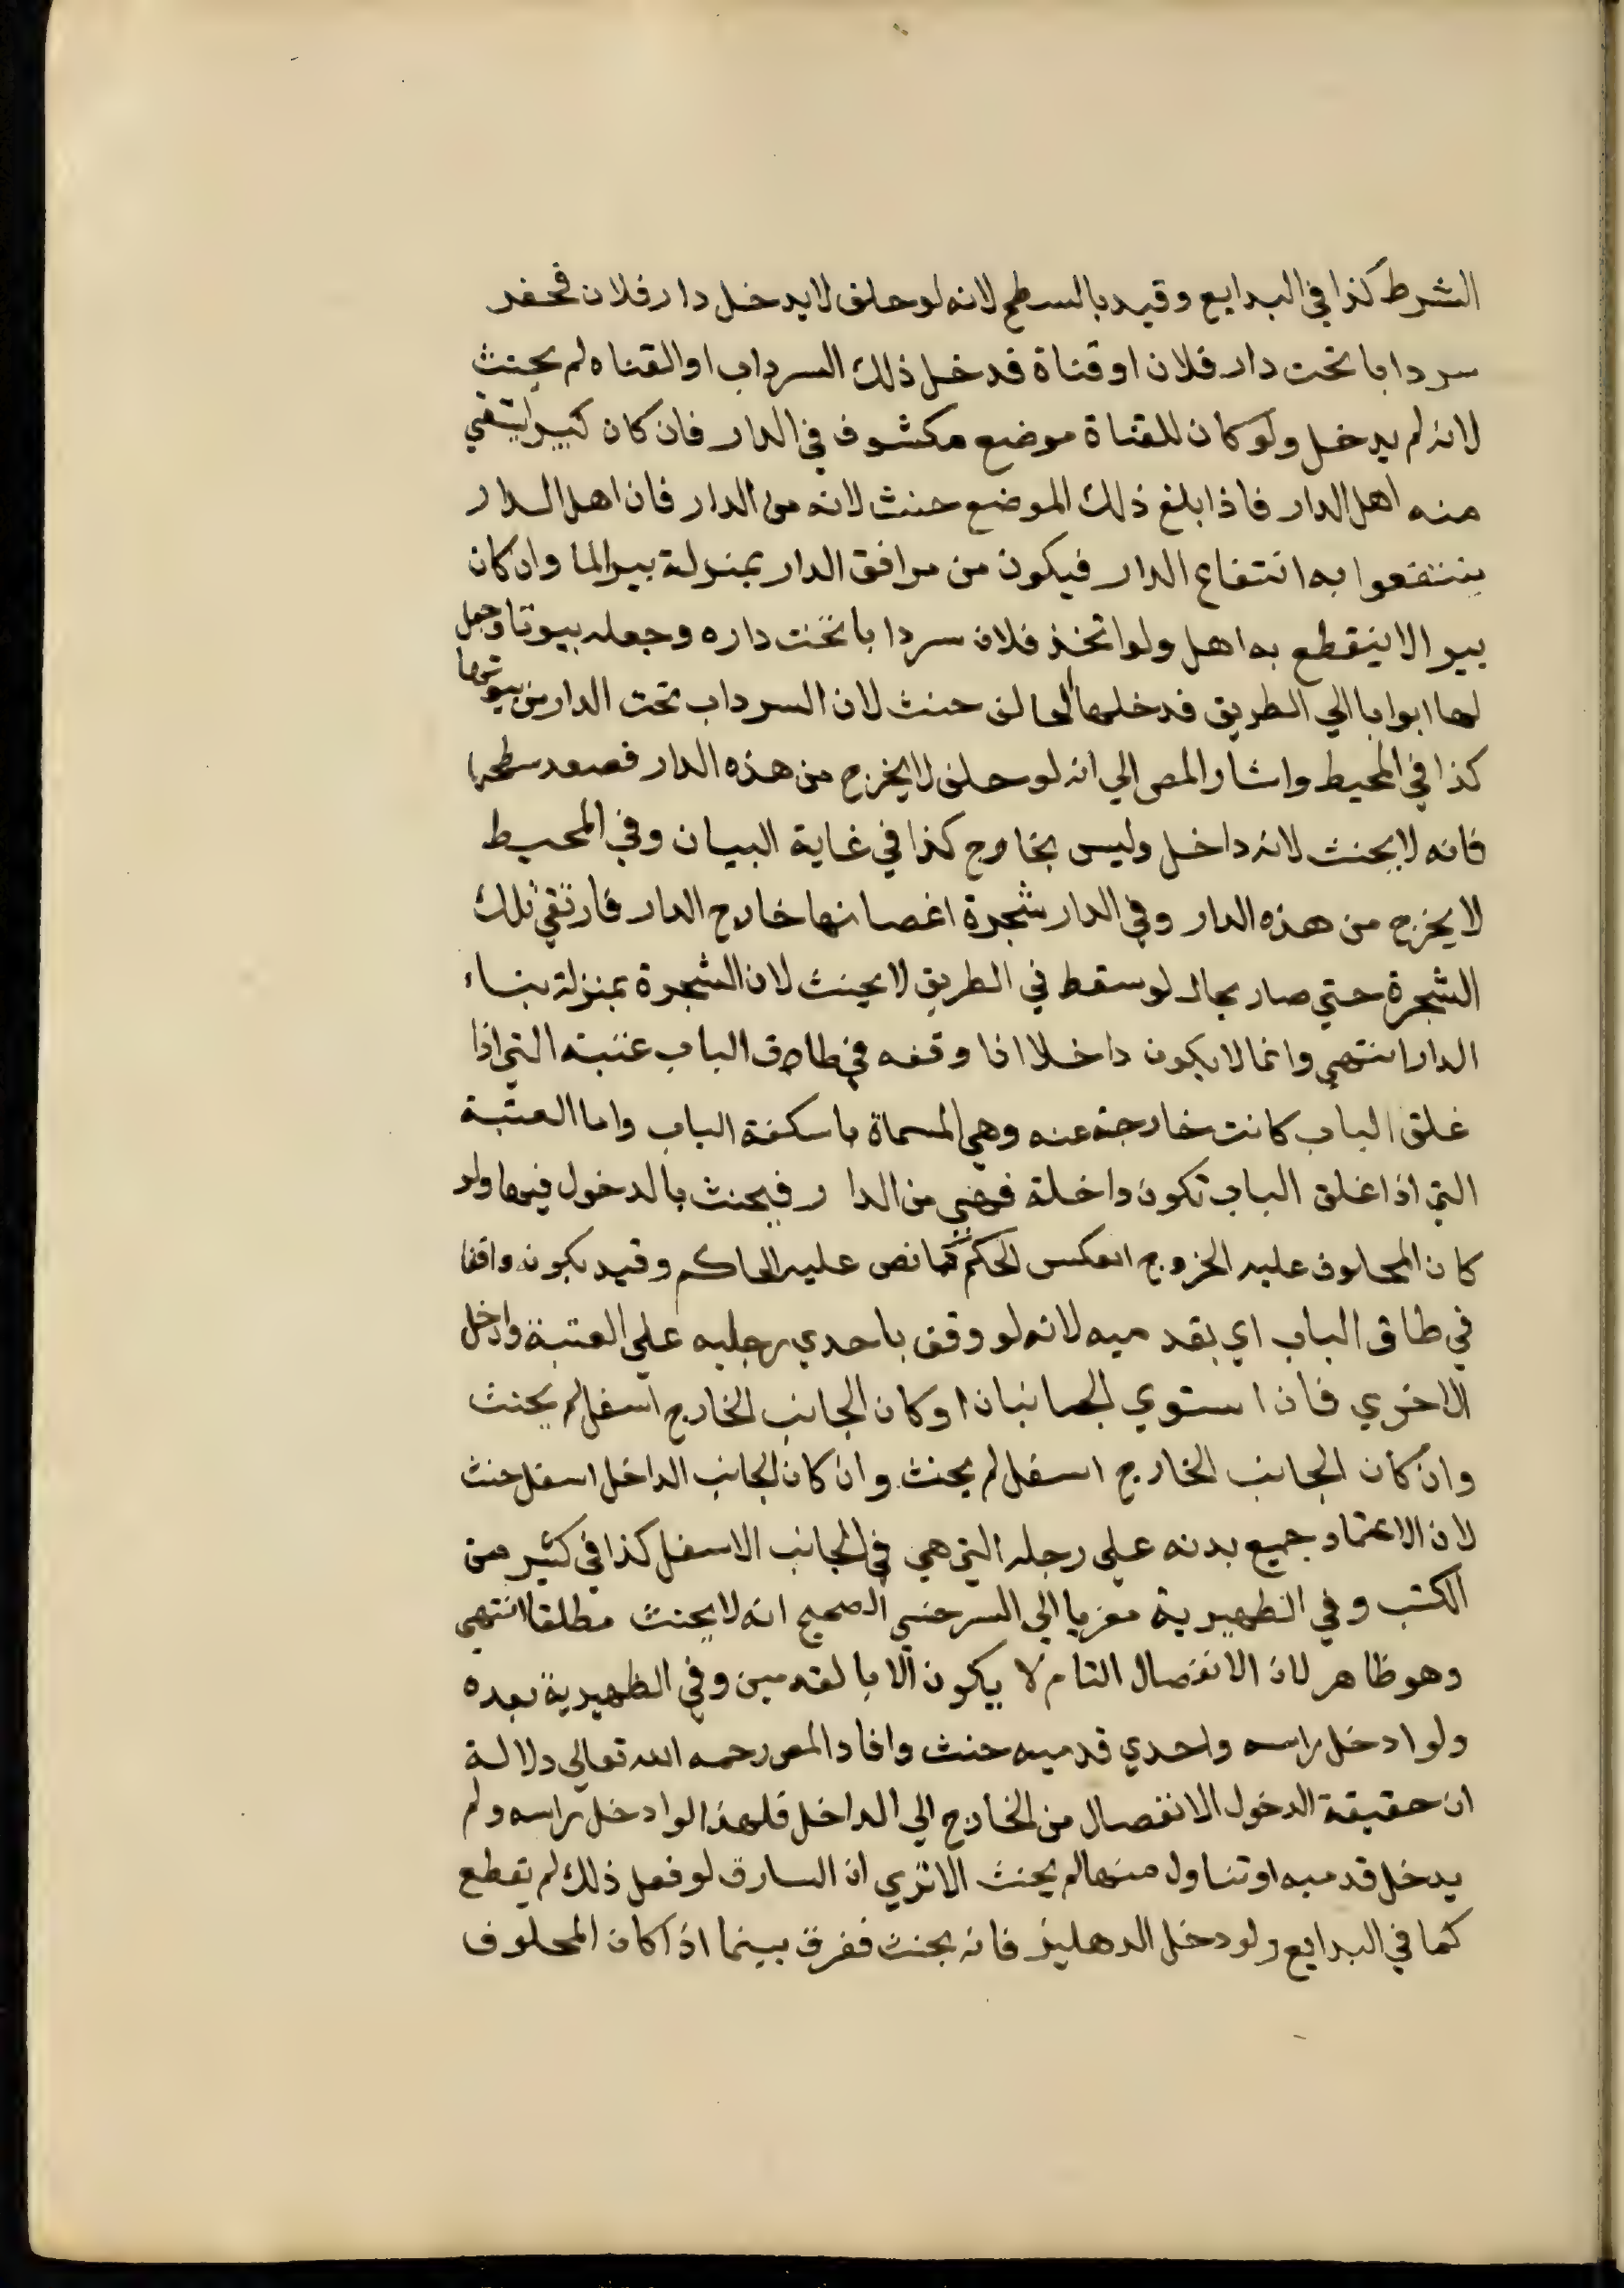 الشرط كذا في البدايع وقيد بالسطح لانه لو حلف لا يدخل دار فلان فحفر
سردابا تحت دار فلان او قناة فدخل ذلك السرداب او القناه لم يحنث
لانه لم يدخل ولو كان للقناة موضع مكشوف في الدار فان كان كبير ليتقي
منه اهل الدار فاذا بلغ ذلك الموضع حنث لانه من الدار فان اهل الدار
ينتفعوا به انتفاع الدار فيكون من مرافق الدار بمنزلة بير الما وان كان
بير الا ينقطع به اهل ولو اتخذ فلان سردابا تحت داره وجعله بيوتا وجعل
لها ابوابا الي الطريق فدخلها الحالف حنث لان السرداب تحت الدار من بيوتها
كذا في المحيط واشار المص الي انه لو حلف لا يخرج من هذه الدار فصعد سطحها
فانه لا يحنث لانه داخل وليس بخارج كذا في غاية البيان وفي المحيط
لا يخرج من هذه الدار وفي الدار شجرة اغصانها خارج الدار فارتقي تلك
الشجرة حتي صار بحال لو سقط في الطريق لا يحنث لان الشجرة بمنزلة بناء
الدار انتهي وانما لا يكون داخلا اذا وقفه في طاق الباب عتبته التي اذا
غلق الباب كانت خارجة عنه وهي المسماة باسكفة الباب واما العتبة
التي اذا غلق الباب تكون داخلة فهي من الدار فيحنث بالدخول فيها ولو
كان المحلوف عليه الخروج انعكس الحكم كما نص عليه الحاكم وقيد بكونه واقفا
في طاق الباب اي بقدميه لانه لو وقف باحدي رجليه علي العتبة وادخل
الاخري فان استوي الجانبان او كان الجانب الخارج اسفل لم يحنث
وان كان الجانب الخارج اسفل لم يحنث وان كان الجانب الداخل اسفل حنث
لان الاعتماد جميع بدنه علي رجله التي هي في الجانب الاسفل كذا في كثير من
الكتب وفي الظهيرية معزيا الي السرخسي الصحيح انه لا يحنث مطلقا انتهي
وهو ظاهر لان الانفصال التام لا يكون الا بالقدمين وفي الظهيرية بعده
ولو ادخل راسه واحدي قدميه حنث وافاد المص رحمه الله تعالي دلالة
ان حقيقة الدخول الانفصال من الخارج الي الداخل فلهذا لو ادخل راسه ولم
يدخل قدميه او تناول منها لم يحنث الا تري ان السارق لو فعل ذلك لم يقطع
كما في البدايع ولو دخل الدهليز فانه يحنث ففرق بينما اذا كان المحلوف